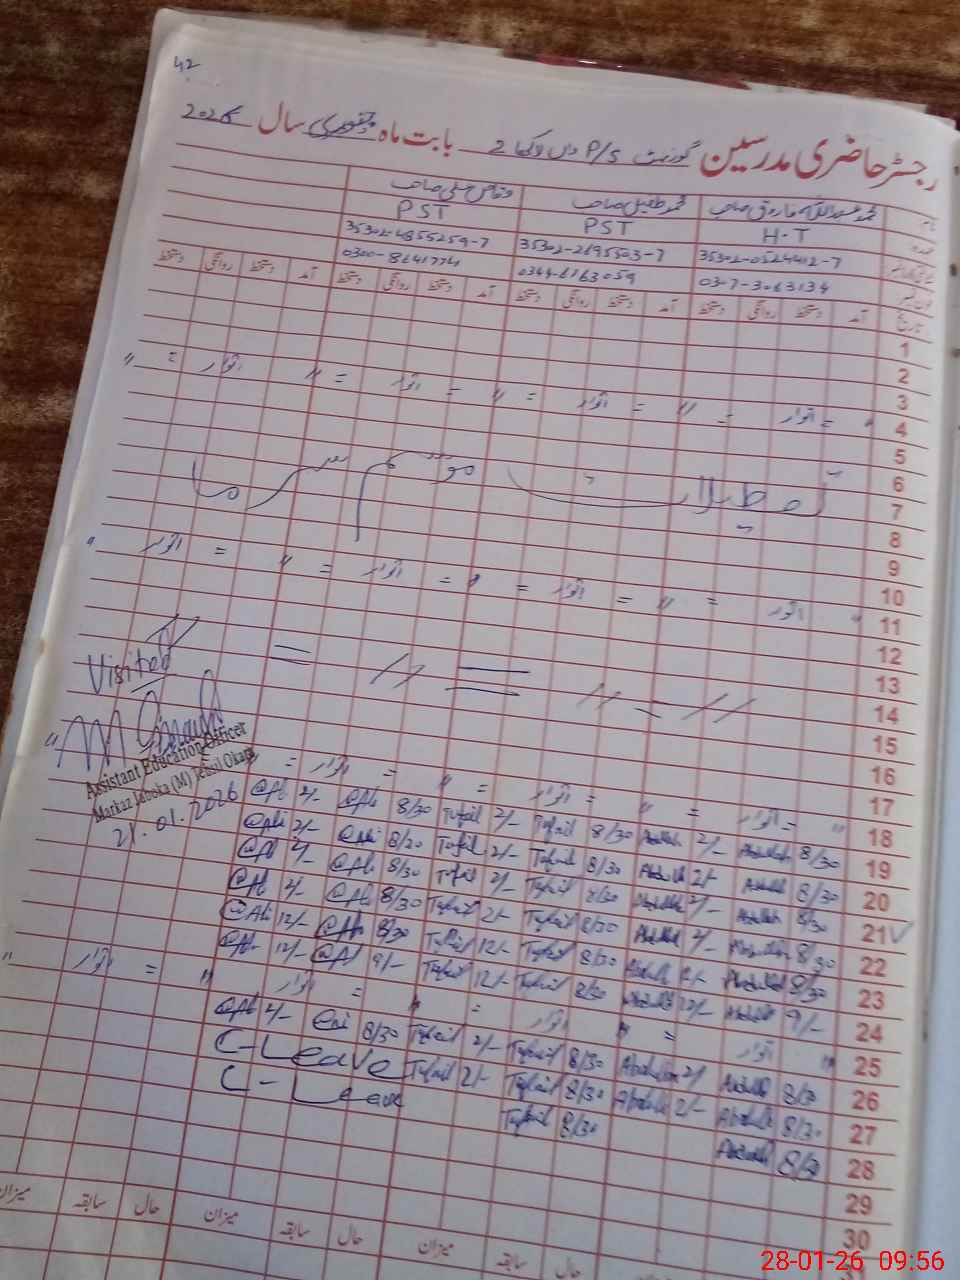 42
رجسٹر حاضری مدرسین گورنمنٹ P/S 2 بابت ماہ جنوری سال 2026
نام محمد عبداللہ فاروق صاحب محمد طفیل صاحب وقاص علی صاحب
عہدہ H.T PST PST
35302-0524412-7 35302-2695503-7 35302-4855259-7
0307-3063134 0344-6163059 0300-8641774
تاریخ آمد دستخط روانگی دستخط آمد دستخط روانگی دستخط آمد دستخط روانگی دستخط آمد دستخط روانگی دستخط
1
2
3
4 " = اتوار = " = اتوار = " = اتوار = " اتوار = "
5
6
7 تعطیلات موسم سرما
8
9
10
11 " اتوار = " = اتوار = " = اتوار = " = اتوار "
12
13
14
15
16
17
18 " = اتوار = " = اتوار = " = اتوار = "
19 8/30 Abdullah 2/- Abdullah 8/30 Tufail 2/- Tufail 8/30 @Ali 2/- @Ali
20 8/30 Abdullah 2/- Abdullah 8/30 Tufail 2/- Tufail 8/20 @Ali 2/- @Ali
21 ✓ 8/30 Abdullah 2/- Abdullah 8/30 Tufail 2/- Tufail 8/30 @Ali 2/- @Ali
22 8/30 Abdullah 2/- Abdullah 8/30 Tufail 2/- Tufail 8/30 @Ali 2/- @Ali
23 8/30 Abdullah 12/- Abdullah 8/30 Tufail 12/- Tufail 8/30 @Ali 12/- @Ali
24 9/- Abdullah 12/- Abdullah 8/30 Tufail 12/- Tufail 9/- @Ali 12/- @Ali
25 " اتوار = " اتوار = " = اتوار " = اتوار "
26 8/30 Abdullah 2/- Abdullah 8/30 Tufail 2/- Tufail 8/30 2/- @Ali
27 8/30 Abdullah 2/- Abdullah 8/30 Tufail 2/- Tufail C-Leave
28 8/30 Abdullah 8/30 Tufail C-Leave
29
30
حال سابقہ میزان حال سابقہ میزان حال سابقہ میزان
Visited
Assistant Education Officer
Markaz Jaboka (M) Tehsil Okara
21.01.2026
28-01-26 09:56